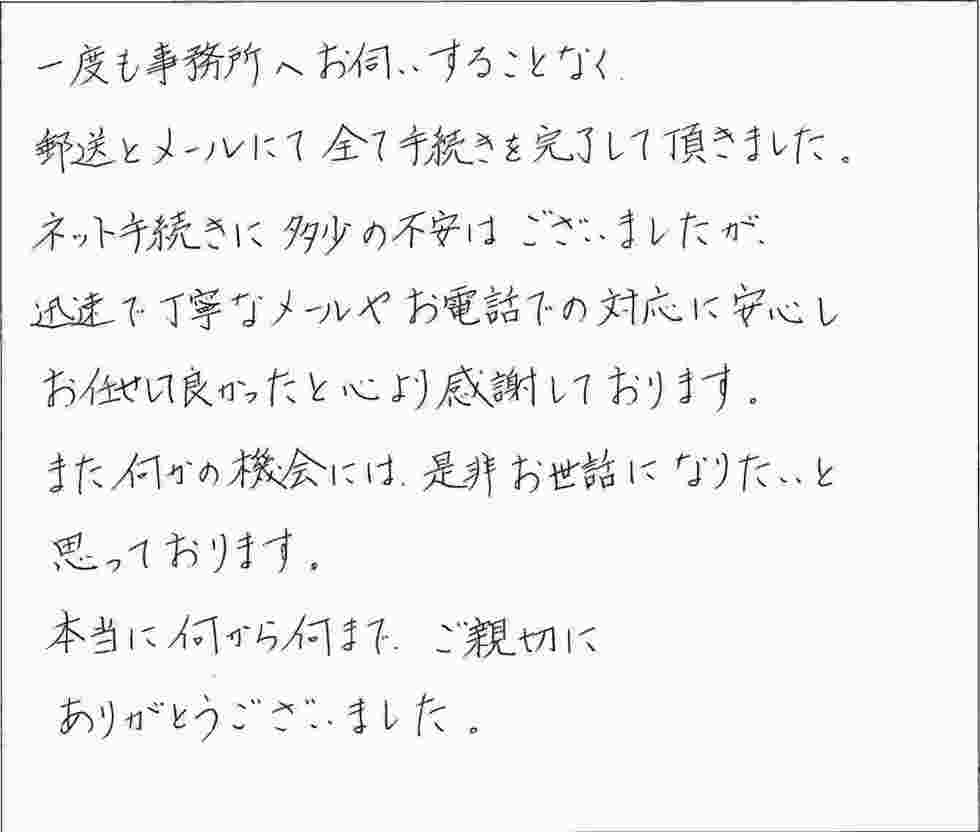 一度も事務所へお伺いすることなく、
郵送とメールにて全て手続きを完了して頂きました。
ネット手続きに多少の不安はございましたが、
迅速で丁寧なメールやお電話での対応に安心し
お任せして良かったと心より感謝しております。
また何かの機会には、是非お世話になりたいと
思っております。
本当に何から何まで、ご親切に
ありがとうございました。